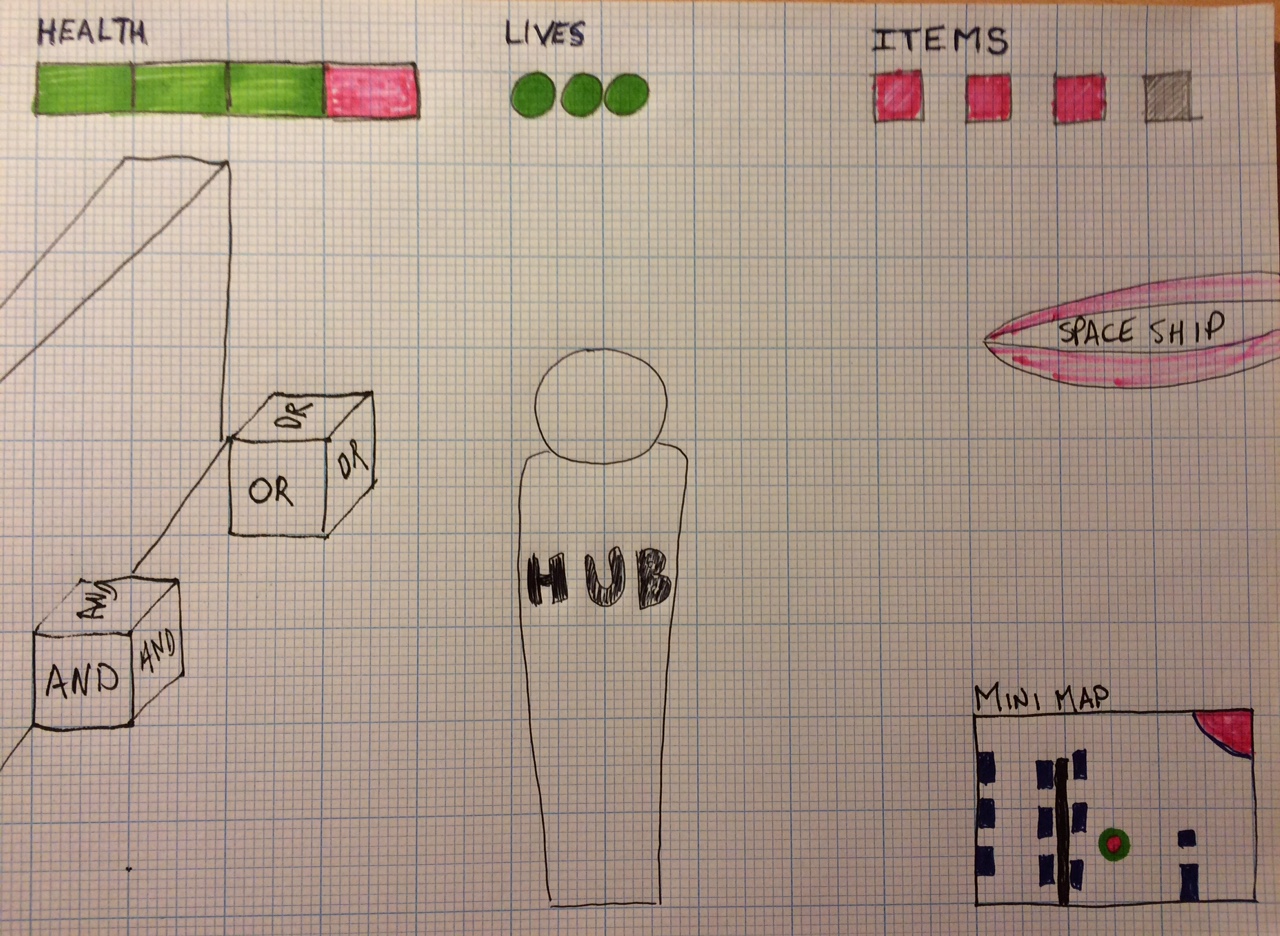 HEALTH
LIVES
ITEMS
SPACE SHIP
OR
OR
OR
HUB
AND
AND
AND
MINI MAP